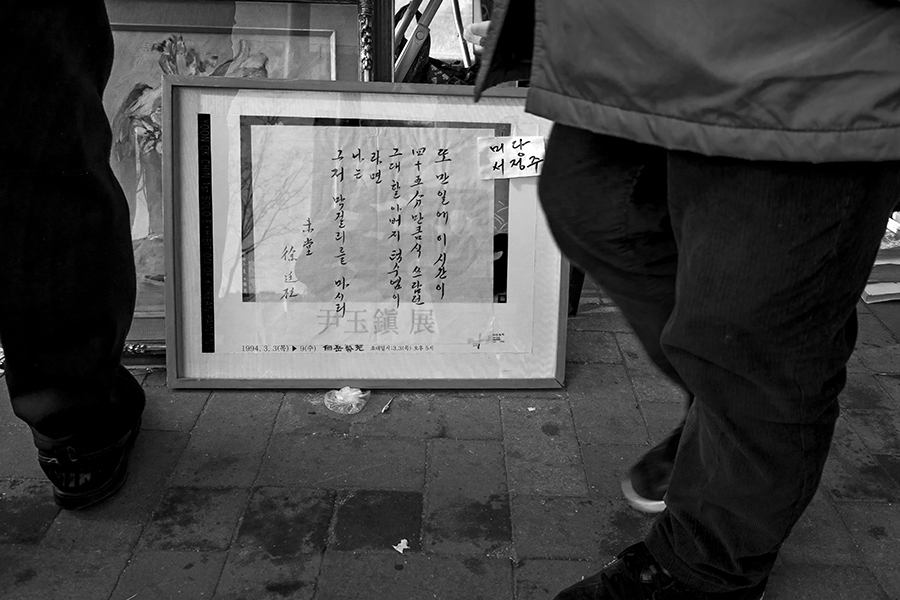 미당
서정주
또 만일에 이 시간이
四十五分만큼식 쓰담던
그대 할아버지 턱수염이
라면
나는
그저 막걸리를 마시리
未堂
徐廷柱
尹玉鎭 展
1994. 3. 3(목) ▶ 9(수) 초대일시:3.3(목) 오후 5시
YOON